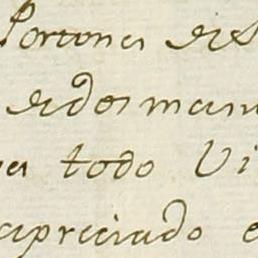 Portones de
de dos man
todo Vi
apreciado e